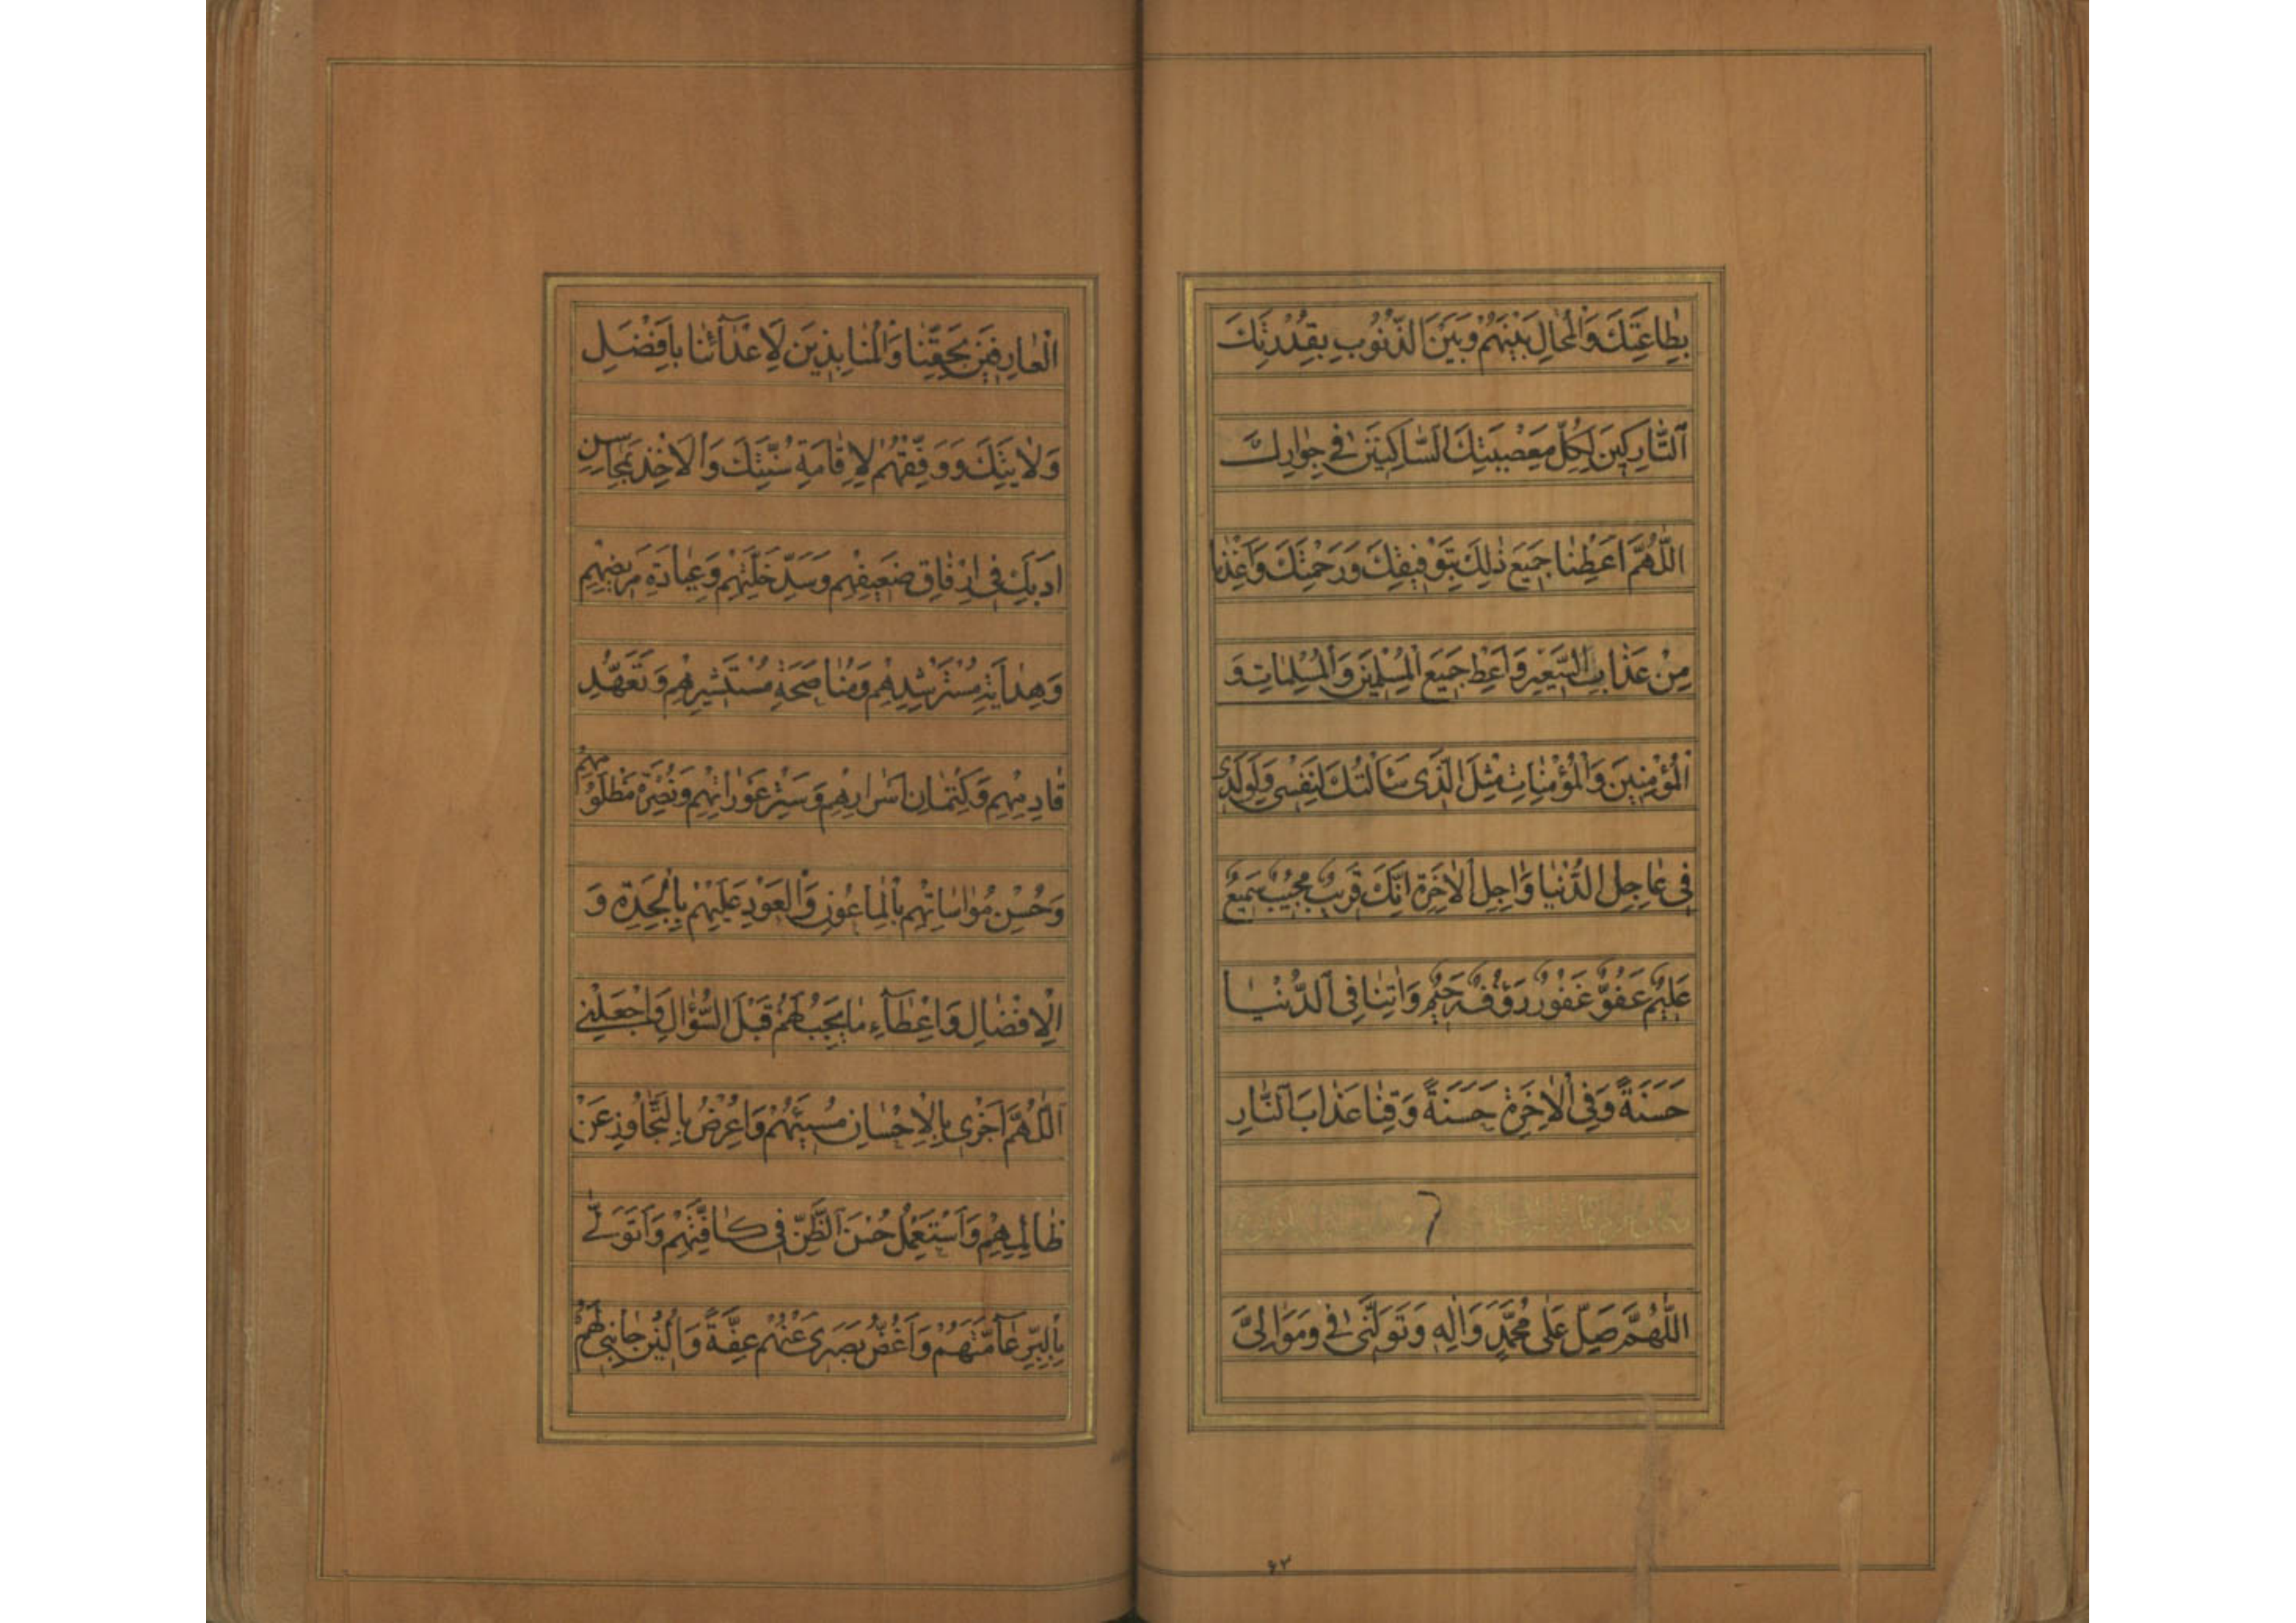 بِطاعَتِكَ وَالْمُحالِ بَيْنَهُمْ وَبَيْنَ الذُّنُوبِ بِقُدْرَتِكَ
اَلتّارِكينَ لِكُلِّ مَعْصِيَتِكَ السّاكِنينَ في جِوارِكَ
اَللّهُمَّ اَعْطِنا جَميعَ ذلِكَ بِتَوْفيقِكَ وَرَحْمَتِكَ وَاَعِذْنا
مِنْ عَذابِ السَّعيرِ وَاَعْطِ جَميعَ الْمُسْلِمينَ وَالْمُسْلِماتِ وَ
الْمُؤْمِنينَ وَالْمُؤْمِناتِ مِثْلَ الَّذى سَاَلْتُكَ لِنَفْسى وَلِوَلَدى
فى عاجِلِ الدُّنْيا وَاجِلِ الْاخِرَةِ اِنَّكَ قَريبٌ مُجيبٌ سَميعٌ
عَليمٌ عَفُوٌّ غَفُورٌ رَؤُفٌ رَحيمٌ وَاتِنا فِى الدُّنْيا
حَسَنَةً وَفِى الْاخِرَةِ حَسَنَةً وَقِنا عَذابَ النّارِ
اَللّهُمَّ صَلِّ عَلى مُحَمَّدٍ وَالِهِ وَتَوَلَّنى في وَمَوالِىَّ
۶۲
الْعارِفينَ بِحَقِّنا وَالْمُنابِذينَ لِاَعْدآئِنا بِاَفْضَلِ
وَلايَتِكَ وَوَفِّقْهُمْ لِاِقامَةِ سُنَّتِكَ وَالْاَخْذِ بِمَحاسِنِ
اَدَبِكَ فى اِرْفاقِ ضَعيفِهِمْ وَسَدِّ خَلَّتِهِمْ وَعِيادَةِ مَريضِهِمْ
وَهِدايَةِ مُسْتَرْشِدِهِمْ وَمُناصَحَةِ مُسْتَشيرِهِمْ وَتَعَهُّدِ
قادِمِهِمْ وَكِتْمانِ اَسْرارِهِمْ وَسَتْرِ عَوْراتِهِمْ وَنُصْرَةِ مَظْلُومِهِمْ
وَحُسْنِ مُواساتِهِمْ بِالْماعُونِ وَالْعَوْدِ عَلَيْهِمْ بِالْجِدَةِ وَ
الْاِفْضالِ وَاِعْطآءِ ما يَجِبُ لَهُمْ قَبْلَ السُّؤالِ وَاجْعَلْنى
اَللّهُمَّ اَجْزى بِالْاِحْسانِ مُسيئَهُمْ وَاُعْرِضُ بِالتَّجاوُزِ عَنْ
ظالِمِهِمْ وَاَسْتَعْمِلُ حُسْنَ الظَّنِّ فى كافَّتِهِمْ وَاَتَوَلّى
بِالْبِرِّ عآمَّتَهُمْ وَاَغُضُّ بَصَرى عَنْهُمْ عِفَّةً وَاُلينُ جانِبى لَهُمْ